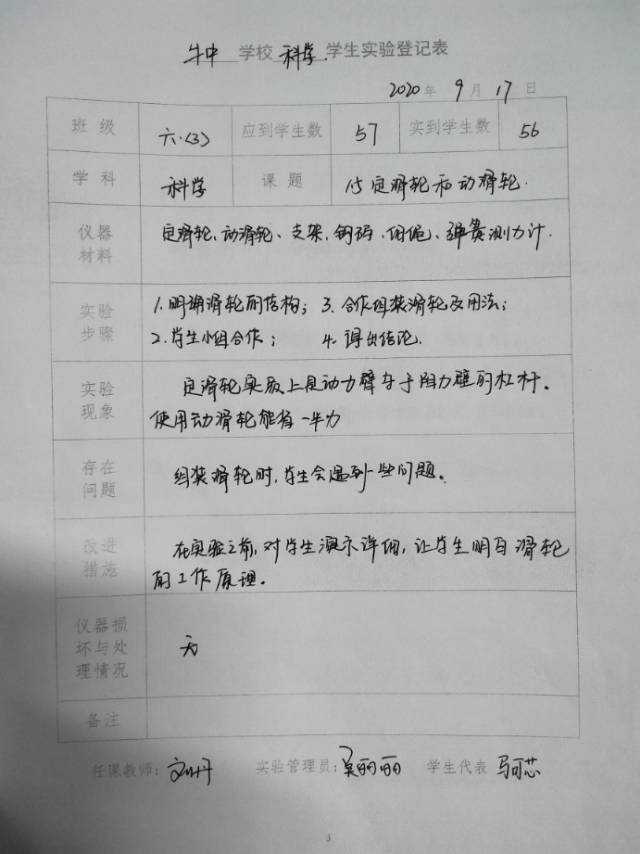 牛中 学校 科学 学生实验登记表
2020 年 9 月 17 日
班 级 六.(3) 应到学生数 57 实到学生数 56
学 科 科学 课 题 15 定滑轮和动滑轮.
仪器材料 定滑轮、动滑轮、支架、钩码、细绳、弹簧测力计.
实验步骤
1. 明确滑轮的结构; 3. 合作组装滑轮及用法;
2. 学生小组合作; 4. 得出结论.
实验现象
定滑轮实质上是动力臂等于阻力臂的杠杆。
使用动滑轮能省一半力
存在问题 组装滑轮时,学生会遇到一些问题。
改进措施
在实验之前,对学生演示详细,让学生明白滑轮
的工作原理。
仪器损坏与处理情况 无
备注
任课教师: 实验管理员: 吴丽丽 学生代表 马可芯
3